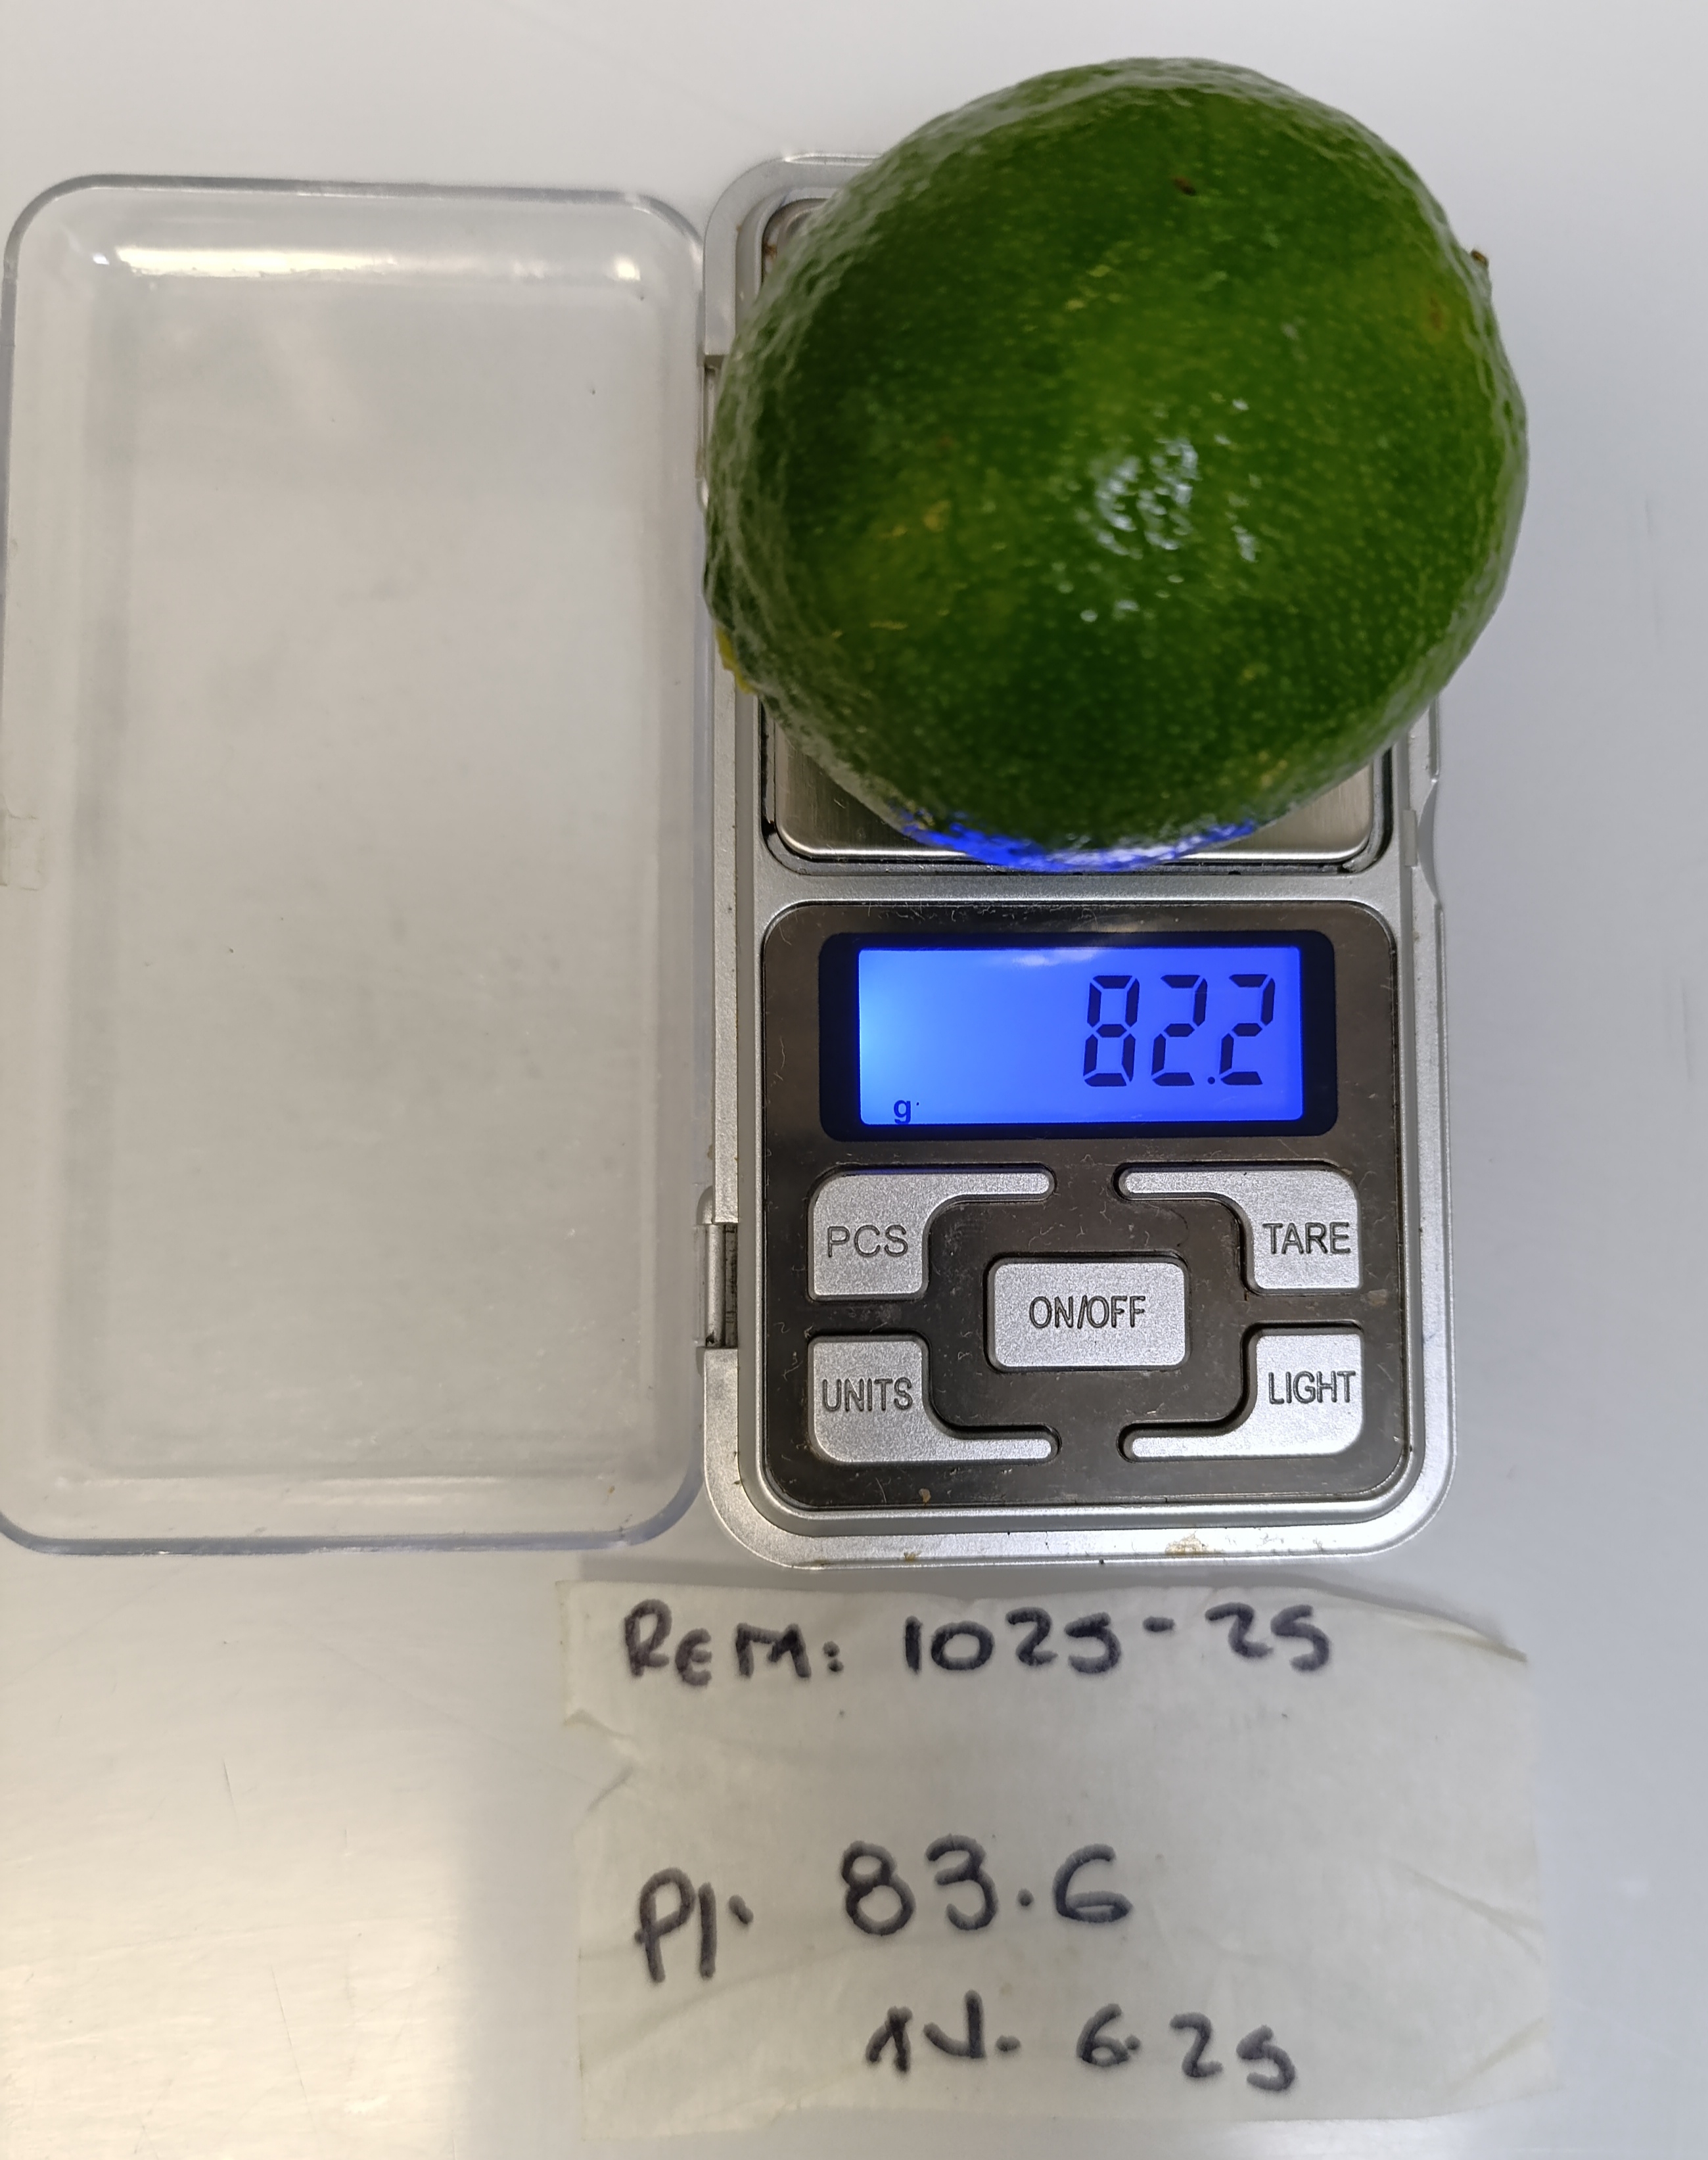 82.2
g
PCS
TARE
ON/OFF
UNITS
LIGHT
REM: 1025-25
PI. 83.6